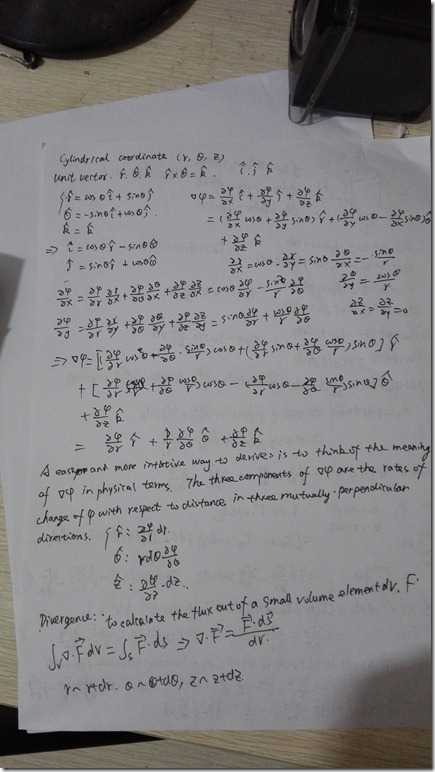 Cylindrical coordinate (r, θ, z)
Unit vector. r̂. θ̂. k̂ r̂×θ̂=k̂. î. ĵ k̂
{ r̂ = cosθ î + sinθ ĵ ∇φ = ∂φ/∂x î + ∂φ/∂y ĵ + ∂φ/∂z k̂
θ̂ = -sinθ î + cosθ ĵ. = (∂φ/∂x cosθ + ∂φ/∂y sinθ) r̂ + (∂φ/∂y cosθ - ∂φ/∂x sinθ) θ̂
k̂ = k̂ + ∂φ/∂z k̂
⇒ î = cosθ r̂ - sinθ θ̂ ∂r/∂x = cosθ. ∂r/∂y = sinθ ∂θ/∂x = - sinθ/r
ĵ = sinθ r̂ + cosθ θ̂ ∂θ/∂y = cosθ/r
∂φ/∂x = ∂φ/∂r ∂r/∂x + ∂φ/∂θ ∂θ/∂x + ∂φ/∂z ∂z/∂x = cosθ ∂φ/∂r - sinθ/r ∂φ/∂θ ∂z/∂x = ∂z/∂y = 0
∂φ/∂y = ∂φ/∂r ∂r/∂y + ∂φ/∂θ ∂θ/∂y + ∂φ/∂z ∂z/∂y = sinθ ∂φ/∂r + cosθ/r ∂φ/∂θ
⇒ ∇φ = [(∂φ/∂r cosθ + ∂φ/∂θ · sinθ/r) cosθ + (∂φ/∂r sinθ + ∂φ/∂θ cosθ/r) sinθ] r̂
+ [ ∂φ/∂r + ∂φ/∂θ cosθ/r) cosθ - (∂φ/∂r cosθ - ∂φ/∂θ sinθ/r) sinθ] θ̂
+ ∂φ/∂z k̂
= ∂φ/∂r r̂ + 1/r ∂φ/∂θ θ̂ + ∂φ/∂z k̂
A easier and more intuitive way to derive is to think of the meaning
of ∇φ in physical terms. The three components of ∇φ are the rates of
change of φ with respect to distance in three mutually-perpendicular
directions. { r̂: ∂φ/∂r dr.
θ̂: r dθ ∂φ/∂θ
ẑ: ∂φ/∂z · dz.
Divergence: to calculate the flux out of a small volume element dv. F.
∫v ∇·F⃗ dv = ∫s F⃗·ds ⇒ ∇·F⃗ = F⃗·ds⃗/dv.
r ~ r+dr. θ ~ θ+dθ, z ~ z+dz